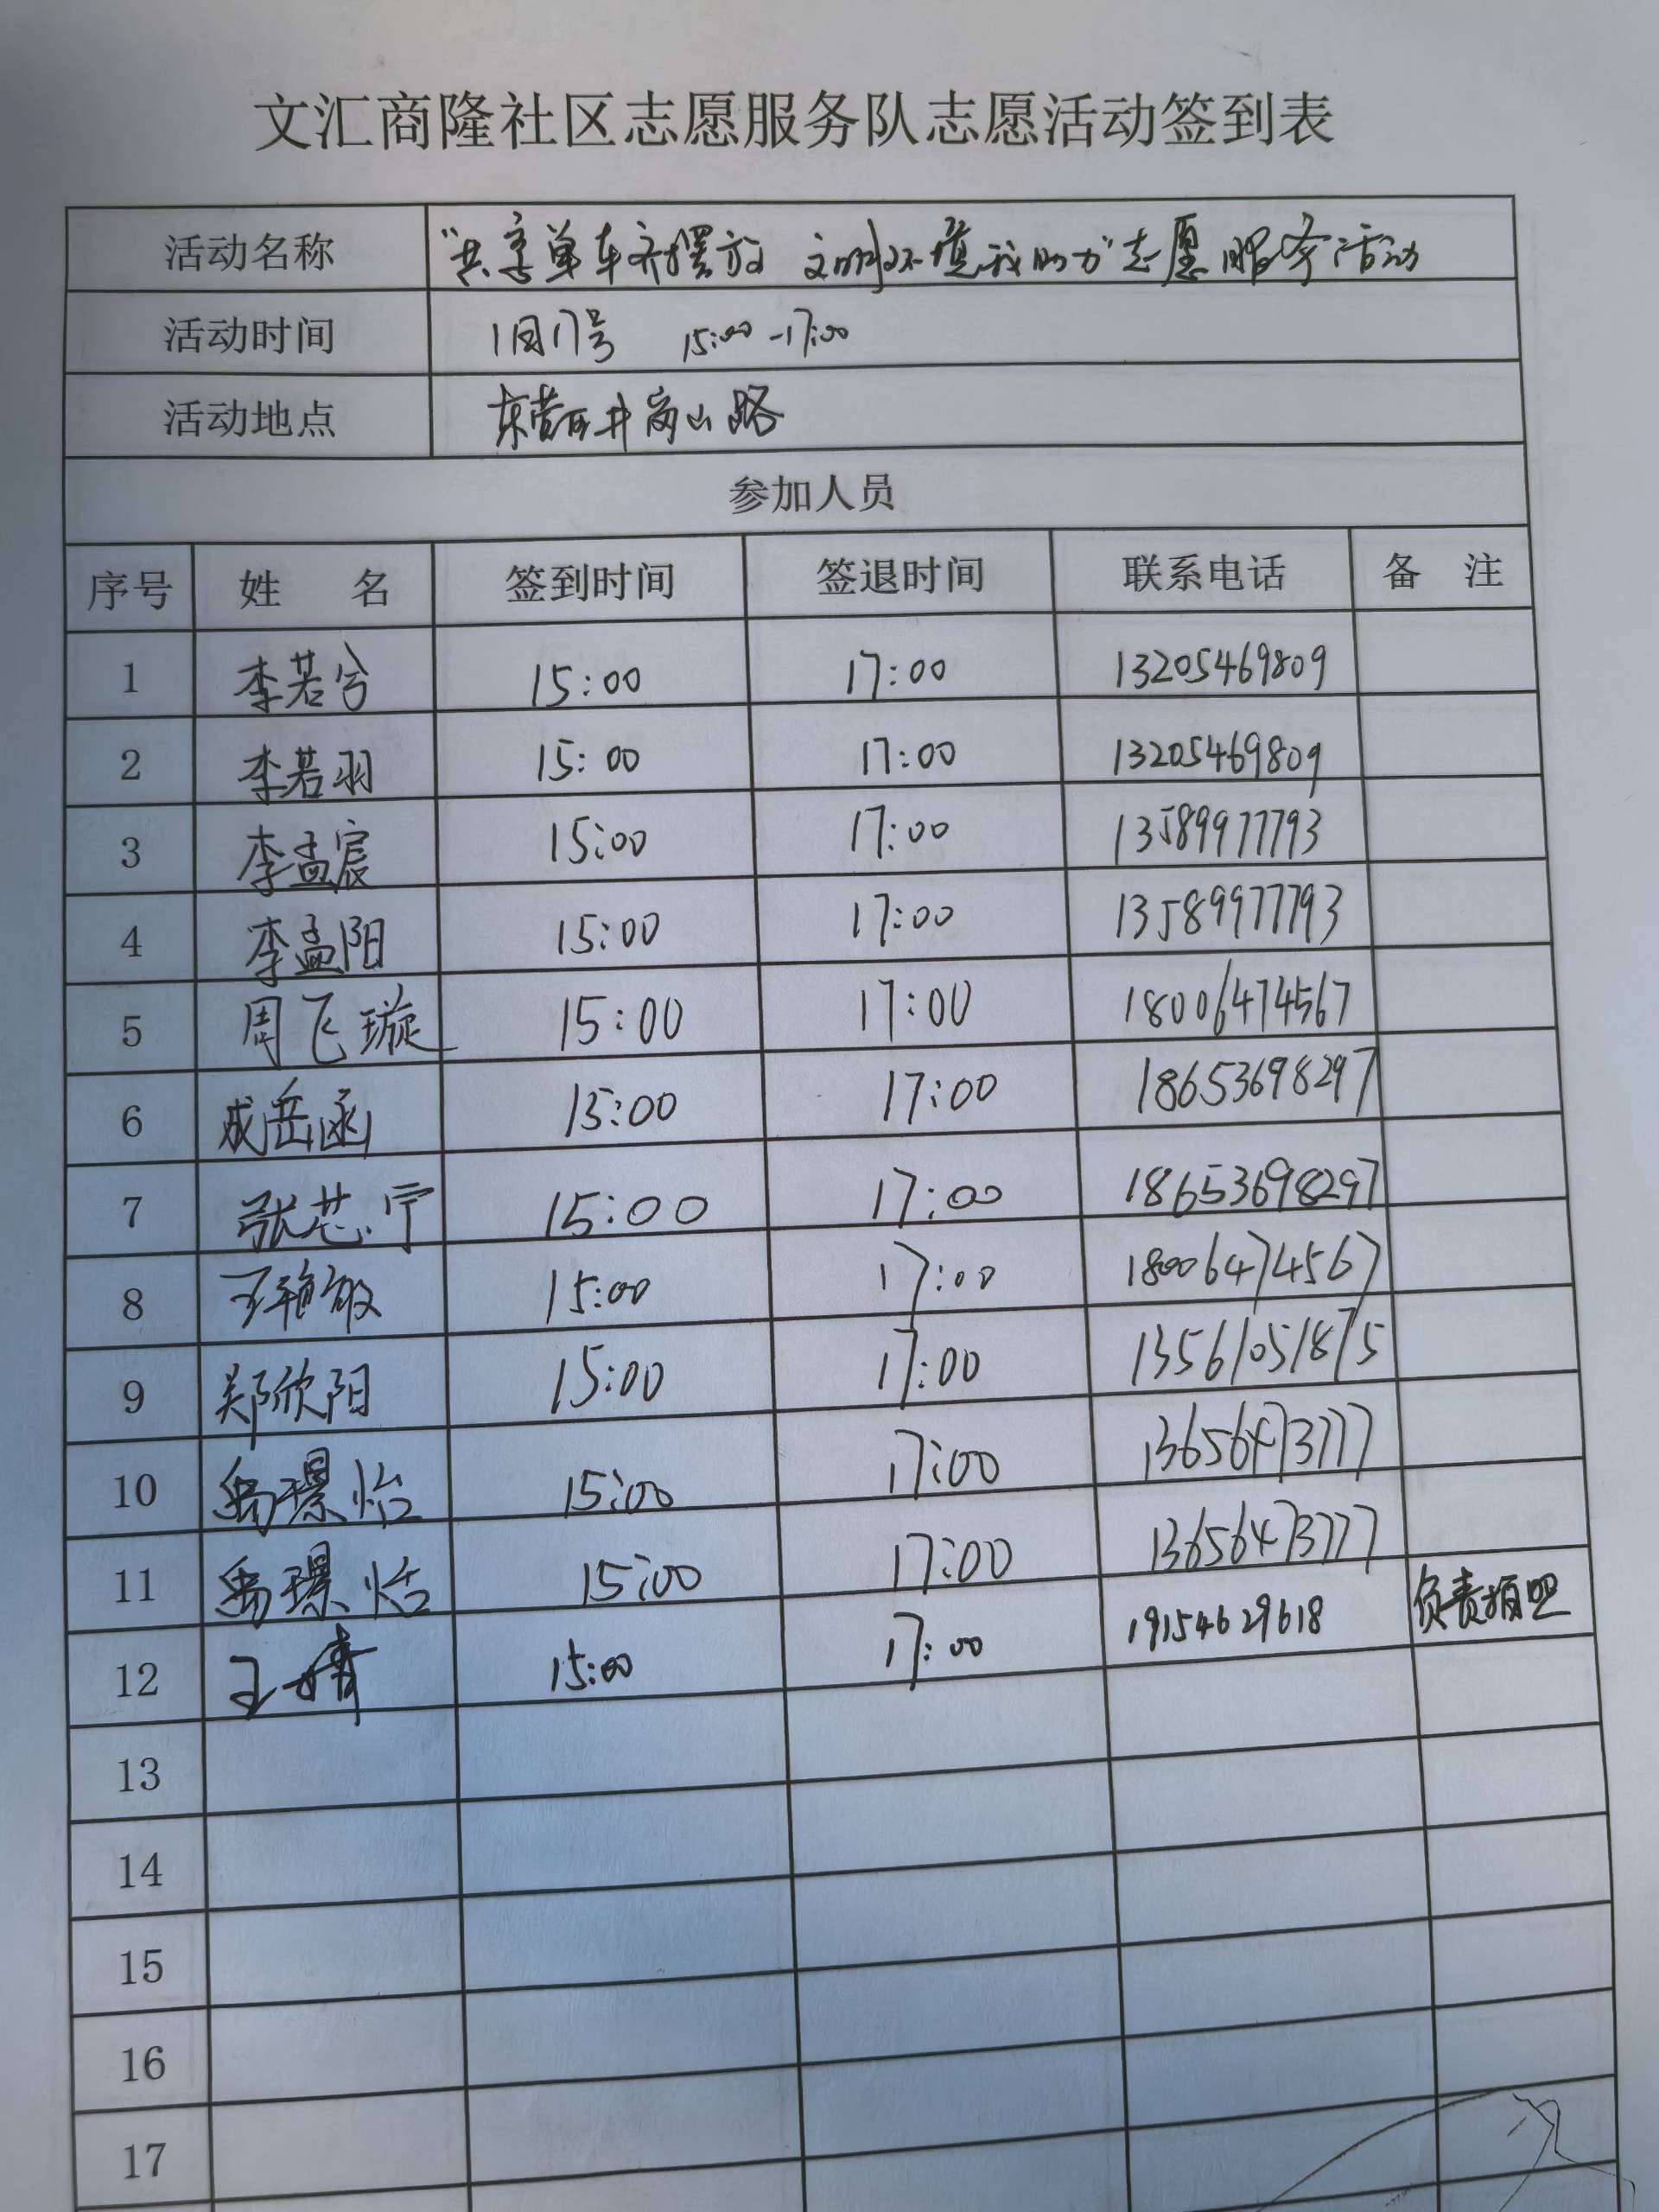 文汇商隆社区志愿服务队志愿活动签到表
活动名称 "共享单车齐摆放 文明环境我助力"志愿服务活动
活动时间 1月17号 15:00-17:00
活动地点 东营区井岗山路
参加人员
序号 姓 名 签到时间 签退时间 联系电话 备 注
1 李若兮 15:00 17:00 13205469809
2 李若羽 15:00 17:00 13205469809
3 李孟宸 15:00 17:00 13589977793
4 李孟阳 15:00 17:00 13589977793
5 周飞璇 15:00 17:00 18006474567
6 成岳函 15:00 17:00 18653698297
7 张芯宁 15:00 17:00 18653698297
8 15:00 17:00 18006474567
9 郑欣阳 15:00 17:00 13561051875
10 禹璟怡 15:00 17:00 13656473777
11 禹璟怡 15:00 17:00 13656473777
12 王婧 15:00 17:00 19154629618 负责拍照
13
14
15
16
17